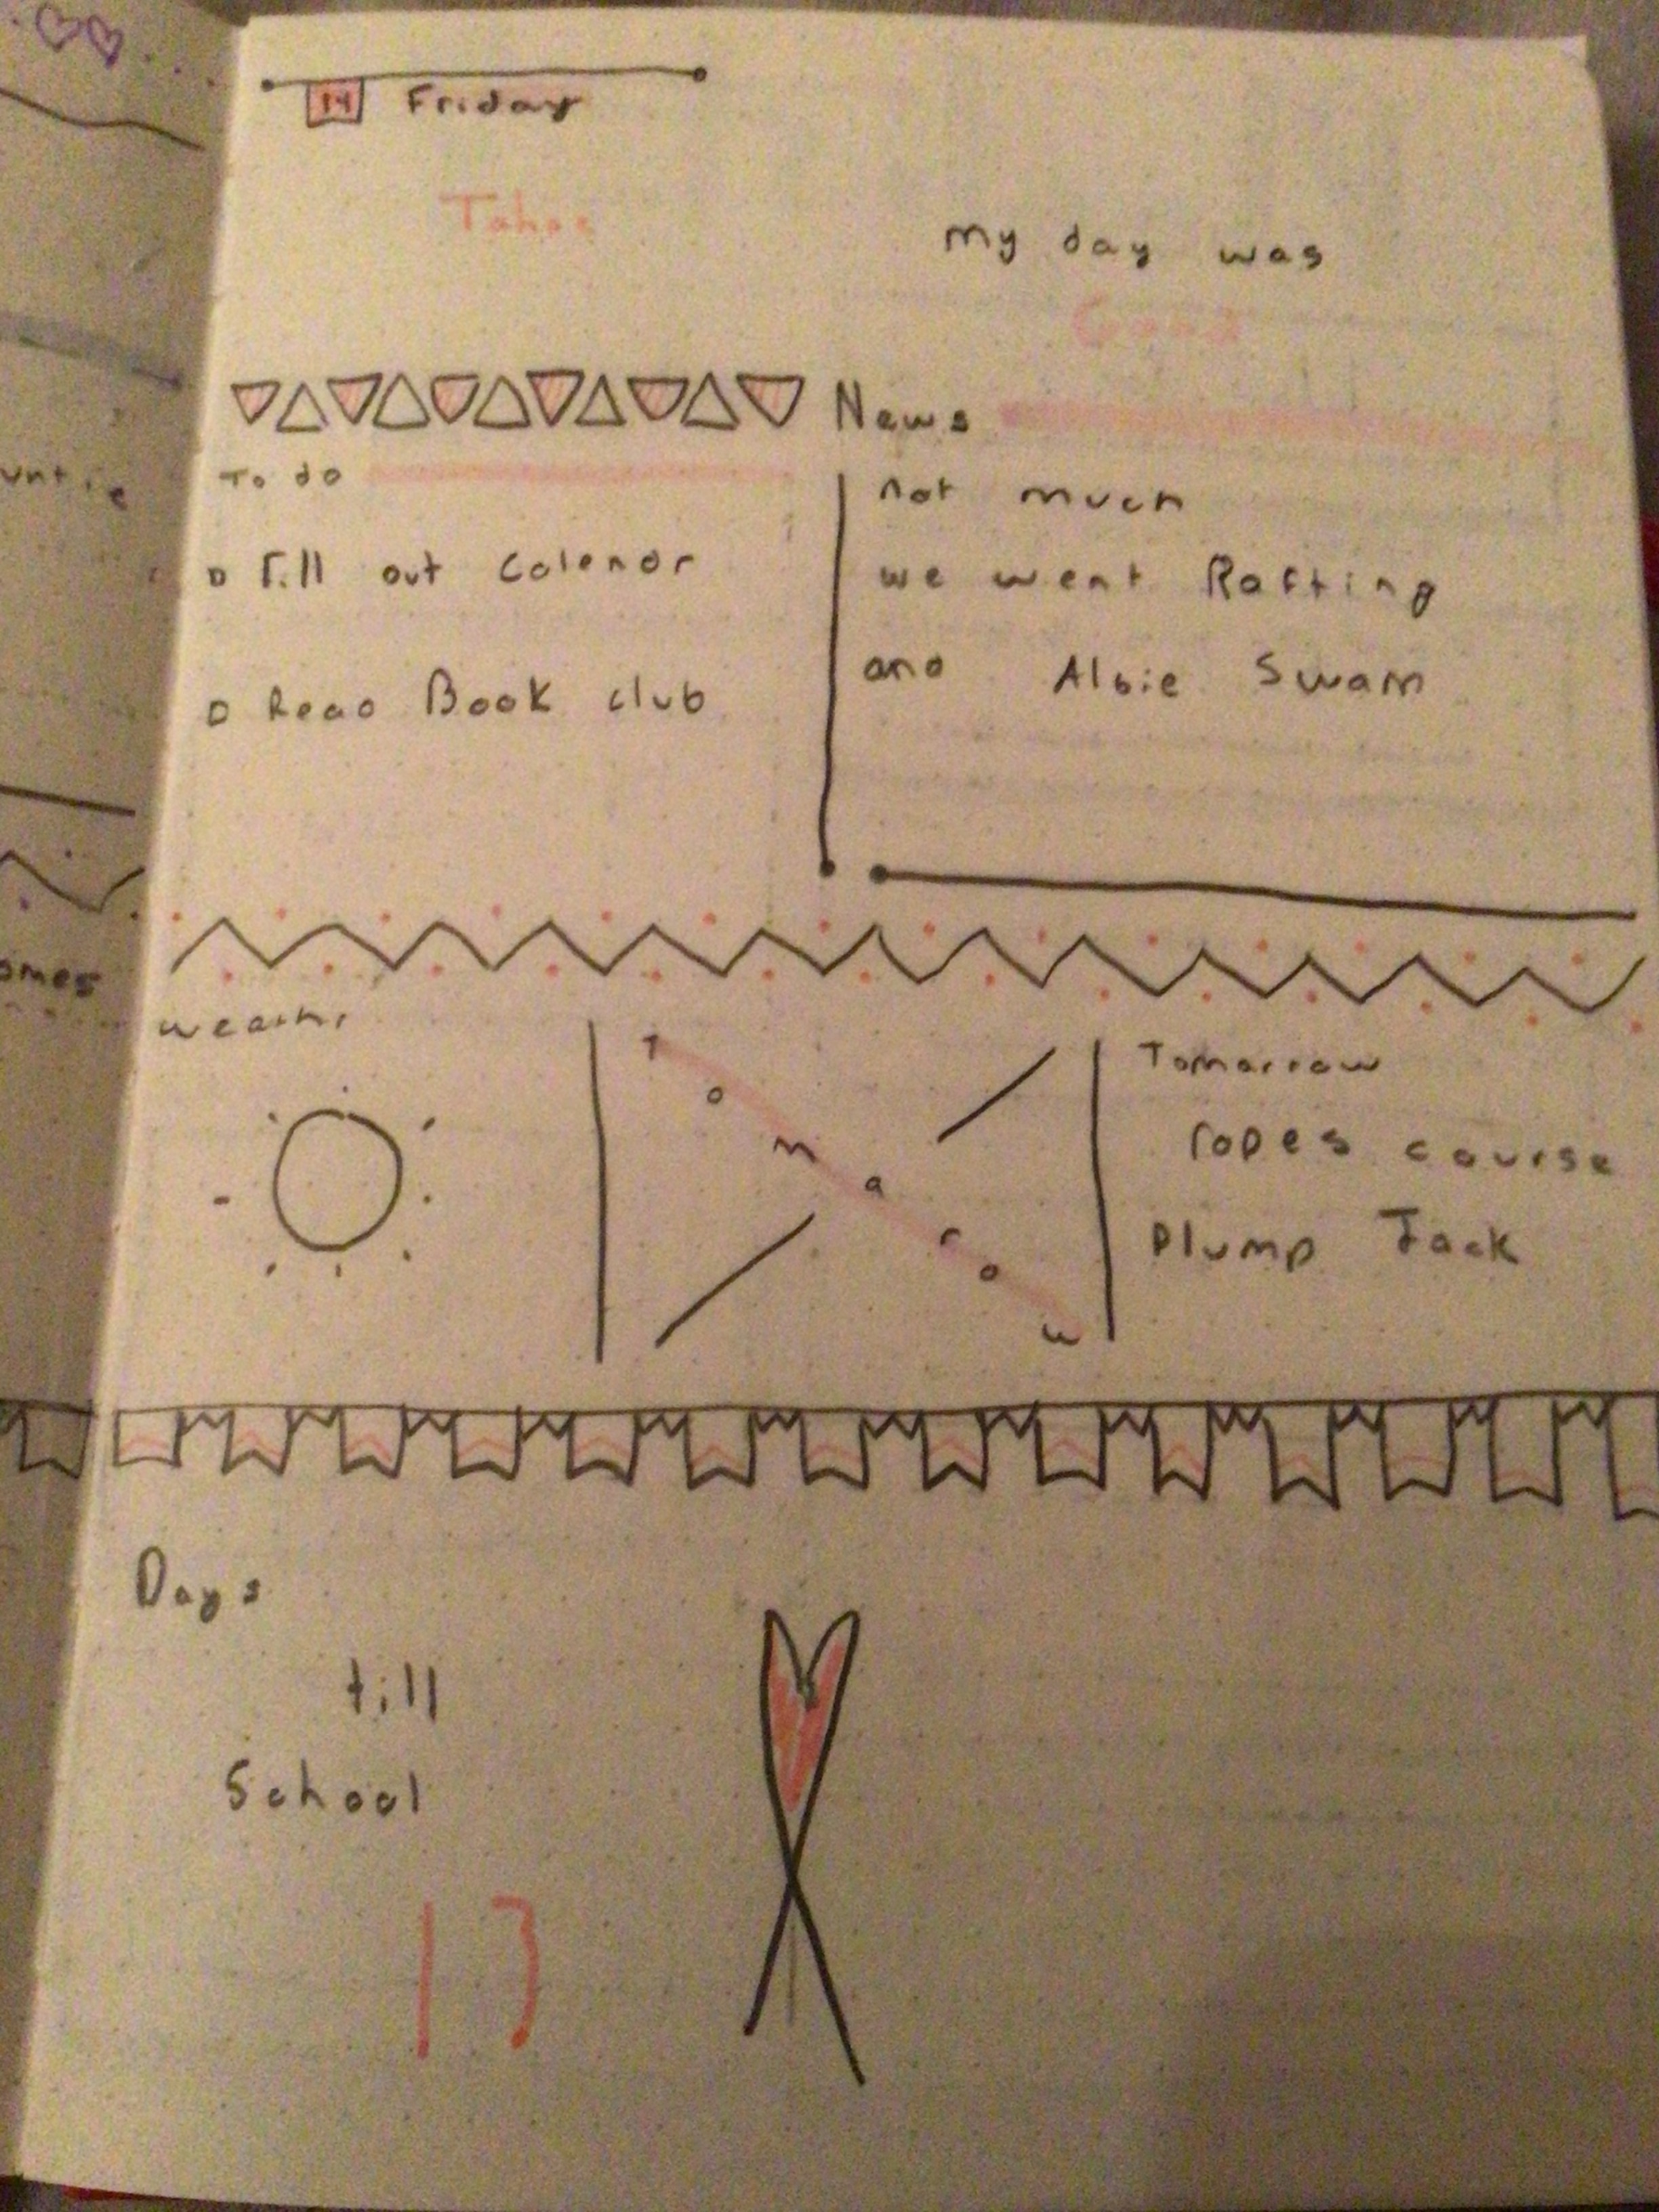 14 Friday
Tahoe
My day was
Good
News
To do
Fill out Calendr
Read Book club
not much
we went Rafting
and Albie Swam
T o m a r o w
Tomarrow
ropes course
Plump Jack
Days
till
School
13